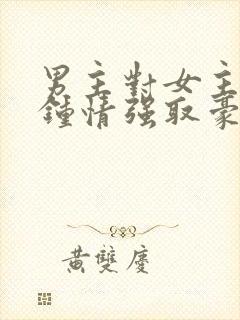 男主對女主
鍾情强取豪
黃雙慶